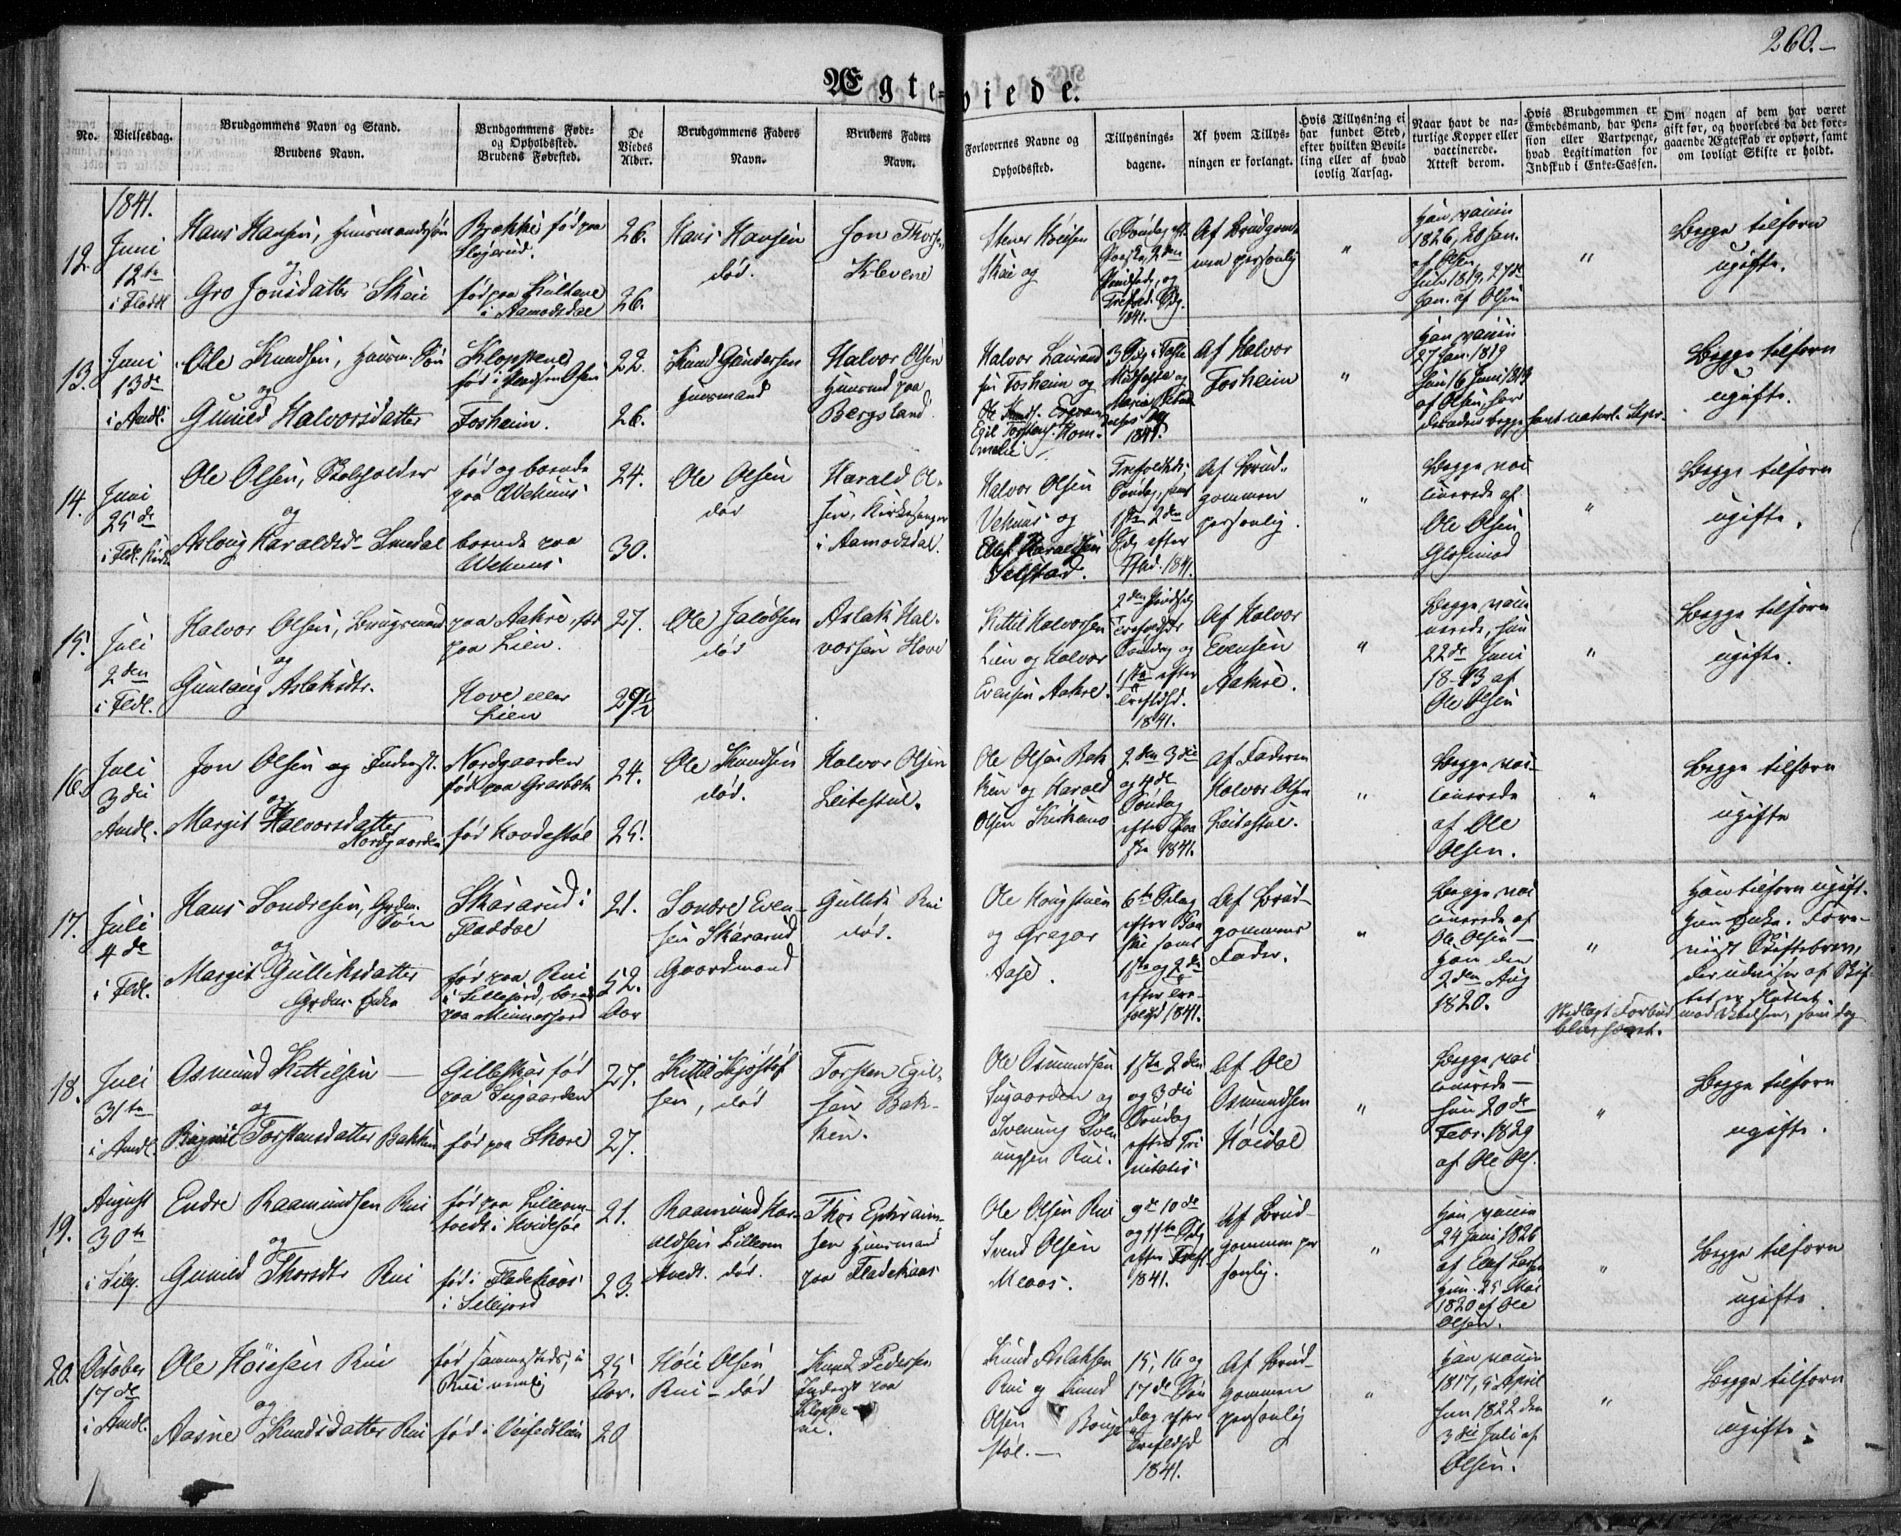 260.–
Ægte-viede.
No.
Vielsesdag.
Brudgommens Navn og Stand.
Brudens Navn.
Brudgommens Føde-
og Opholdssted.
Brudens Fødested.
De
Viedes
Alder.
Brudgommens Faders
Navn.
Brudens Faders
Navn.
Forlovernes Navne og
Opholdssted.
Tillysnings-
dagene.
Af hvem Tillys-
ningen er forlangt.
Hvis Tillysning ei
har fundet Sted,
efter hvilken Bevil-
ling eller af hvad
lovlig Aarsag.
Naar havt de na-
turlige Kopper eller
vaccinerede.
Attest derom.
Hvis Brudgommen er
Embedsmand, har Pen-
sion eller Vartpenge,
hvad Legitimation for
Indskud i Enke-Cassen.
Om nogen af dem har været
gift før, og hvorledes da det fore-
gaaende Ægteskab er ophørt, samt
om lovligt Skifte er holdt.
1841.
12.
Juni
12te
i Fladdl
Hans Hansen, Huusmandssøn
og
Gro Jonsdatter Skeie
Brække, fød paa
født paa
i Aamodsdal
26.
26.
Hans Hansen
død.
Jon Thorsen
Klevene
Stener
Skeie og
6 Søndag eft.
Paaske, 2den
Pindsedg, og
Trefold. Sdg.
1841.
Af Brudgom-
men personlig
"
Han vaccin
1826, 20 Jan.
af Olsen
Hun 1819, 27de
Jan. af Olsen
"
Begge tilforn
ugifte.
13.
Juni
13de
i Amdl.
Ole Knudsen, Huusm. Søn
og
Gunild Halvorsdatter
Kloppene
Fosheim.
22.
26.
Knud Gundersen
Huusmand
Halvor Olsen
Huusmd paa
Bergsland.
Halvor Laurand
sen Fosheim og
Ole Knuds.
Egil Torstens. Hom-
3 Sdg i Faste
Midfaste og
Mariæ
1841.
Af Halvor
Fosheim
"
Han vaccin
27 Jan. 1819
Hun 16 Juni 1819
af Olsen, har
desuden begge havt naturl. Kopr.
Begge tilforn
ugifte.
14.
Juni
25de
i Fldl. Kirke
Ole Olsen, Skoleholder
og
Aslaug Haraldsd. Lundal
fød og boende
paa Vehuus
boende paa
Vehuus
24.
30.
Ole Olsen
død
Harald Ol-
sen, Kirkesanger
i Aamodsdal.
Halvor Olsen
Vehuus og
Ellef Haraldsen
Selstad.
Trefoldkds
Søndag, samt
1ste 2den
Sdg efter
1841.
Af Brud-
gommen
personlig.
"
Begge vac
cinerede af
Ole Olsen
Glosimod
"
Begge tilforn
ugifte.
15.
Juli
2den
i Fldl.
Halvor Olsen, Brugsmand
og
Gunlaug Aslaksdtr.
paa Aakre, fød
paa Lien.
Hove eller
Lien
27.
29 1/2
Ole Jacobsen
død
Aslak Hal-
vorsen Hove
Kittil Halvorsen
Lien og Halvor
Evensen Aakre.
2den Pindsedg
Trefoldgds
Søndag og
1ste efter
Trefldhd.
1841.
Af Halvor
Evensen
Aakre.
"
Begge vacci
nerede, hun
22de Juni
18-13 af
Ole Olsen
"
Begge tilforn
ugifte.
16.
Juli
3die
Amdl.
Jon Olsen og Inderst.
og
Margit Halvorsdatter
Nordgaarden
Nordgaarden
fød paa Græsbæk
fød Hovdestøl
24.
25.
Ole Knudsen
død.
Halvor Olsen
Leitestul.
Ole Olsen Bak
ken og Harald
Olsen
2den 3die
og 4de
Søndag
efter Paa
ske 1841.
af Faderen
Halvor Olsen
Leitestul.
"
Begge vac-
cinerede
af Ole
Olsen.
"
Begge tilforn
ugifte
17.
Juli
4de
i Fldl.
Hans Sondresen, Grdm.
Søn
og
Margit Gulliksdatter
Grdm. Enke
Skårarud i
Fladdal
fød paa Rui
i Sillejord, boende
paa Minnesjord
21.
52.
Aar
Sondre Even-
sen Skårarud
Gaardmand
Gullik Rui
død.
Ole Haugstuen
og Gregar
Aase.
6te Sdag
efter Paa
ske samt
1ste og 2de
efter Tre-
foldgd 1841.
Af Brud-
gommens
Fader.
"
Begge vac
cinerede af
Ole Olsen –
Han den
2den Aug
1820.
"
Nedlagt Forbud
blev hævet.
Han tilforn ugift.
Hun Enke. Fore-
viist Skiftebrev,
der udviser at Skif-
tet er sluttet
mod Vielsen, som dog
18.
Juli
31te
i Amdl.
Osmund Kittilsen –
og
Ragnil Torstensdatter Bakken
Gilleskar fød
paa Sugaarden
fød paa Skore
27.
27.
Kittil Kjøstolf
sen, død
Torsten Egil-
sen Bak-
ken.
Ole Osmundsen
Sugaarden og
Svenung Sven
ungsen Rui.
1ste 2den
og 3die
Søndag
efter Tri
nitatis
Af Ole
Osmundsen
Høidal
"
Begge vac
cinerede –
hun 20de
Febr. 1829
af Ole Ols.
"
Begge tilforn
ugifte.
19.
August
30te
i Silj.
Endre Raamundsen Rui
og
Gunild Thorsdtr Rui
fød paa Lilleom-
tvedt i Hvideseie
fød i Fladehaas
i Sillejord
21.
23.
Raamund Har-
aldsen Lilleom
tvedt. død.
Thor Ephraim-
sen Huusmand
paa Fladehaas
Ole Olsen Rui
Svend Olsen
Meaas.
9de 10de
og 11te Sdg
efter Trefl.
1841.
Af Brud-
gommen per
sonlig.
"
Han vaccin
29 Juni 1826
af Olaf
Hun. 25 Mai
1820 af Ole
Olsen.
"
Begge tilforn
ugifte.
20.
October
17de
i Amdl.
Ole Høiesen Rui
og
Aasne Knudsdatter Rui
fød sammesteds, i
Rui nemlig
fød i
25
Aar.
20
Høie Olsen
Rui – død
Knud Pedersen
Inderst paa
Kloppe
ne.
Knud Aslaksen
Rui og Knud
Olsen Bouge
støl. –
15, 16 og
17de Søn
dag efter
Trefldhd
1841.
Af Brud-
gommen
personlig
"
Han vaccin
1817, 9 April
Hun 1822 den
3die Juli af
Olsen.
"
Begge tilforn
ugifte.